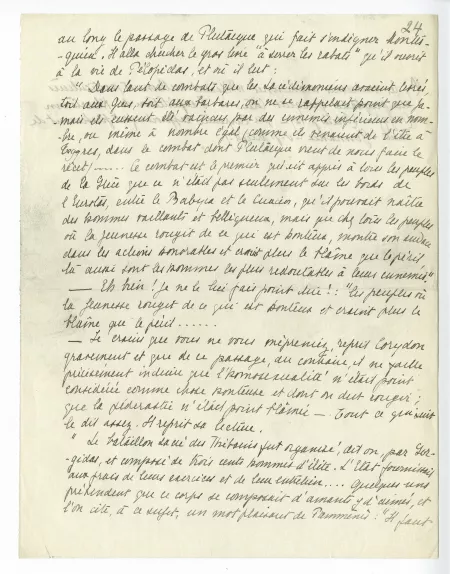 24
au long le passage de Plutarque qui fait s'indigner Montes-
-quieu. Il alla chercher le gros livre "à serrer les rabats" qu'il ouvrit
à la vie de Pélopidas, et où il lut :
"Dans tant de combats que les Lacédémoniens avaient livrés,
soit aux Grecs, soit aux barbares, on ne se rappelait point que ja-
-mais ils eussent été vaincus par des ennemis inférieurs en nom-
-bre, ou même à nombre égal (comme ils venaient de l'être à
dans le combat dont Plutarque vient de nous faire le
récit) ...... Ce combat est le premier qui ait appris à tous les peuples
de la Grèce que ce n'était pas seulement sur les bords de
l'Eurotas, entre le Babyca et le Cnacion, qu'il pouvait naître
des hommes vaillants et belliqueux, mais que chez tous les peuples
où la jeunesse rougit de ce qui est honteux, montre son audace
dans les actions honorables et craint plus le blâme que le péril
là aussi sont les hommes les plus redoutables à leurs ennemis"
— Eh bien ! je ne le lui fais point dire ! : "les peuples où
la jeunesse rougit de ce qui est honteux et craint plus le
blâme que le péril ......
— Je crains que vous ne vous mépreniez, reprit Corydon
gravement et que de ce passage, au contraire, il ne faille
précisément induire que l'homosexualité n'était point
considérée comme chose honteuse et dont on dut rougir ;
que la pédérastie n'était point blâmée — Tout ce qui suit
le dit assez. Il reprit sa lecture.
" Le bataillon sacré des Thébains fut organisé, dit on, par Gor-
-gidas, et composé de trois cents hommes d'élite. L'Etat fournissait
aux frais de leurs exercices et de leur entretien .... Quelques uns
prétendent que ce corps se composait d'amants et d'aimés, et
l'on cite, à ce sujet, un mot plaisant de Pamménès : "Il faut